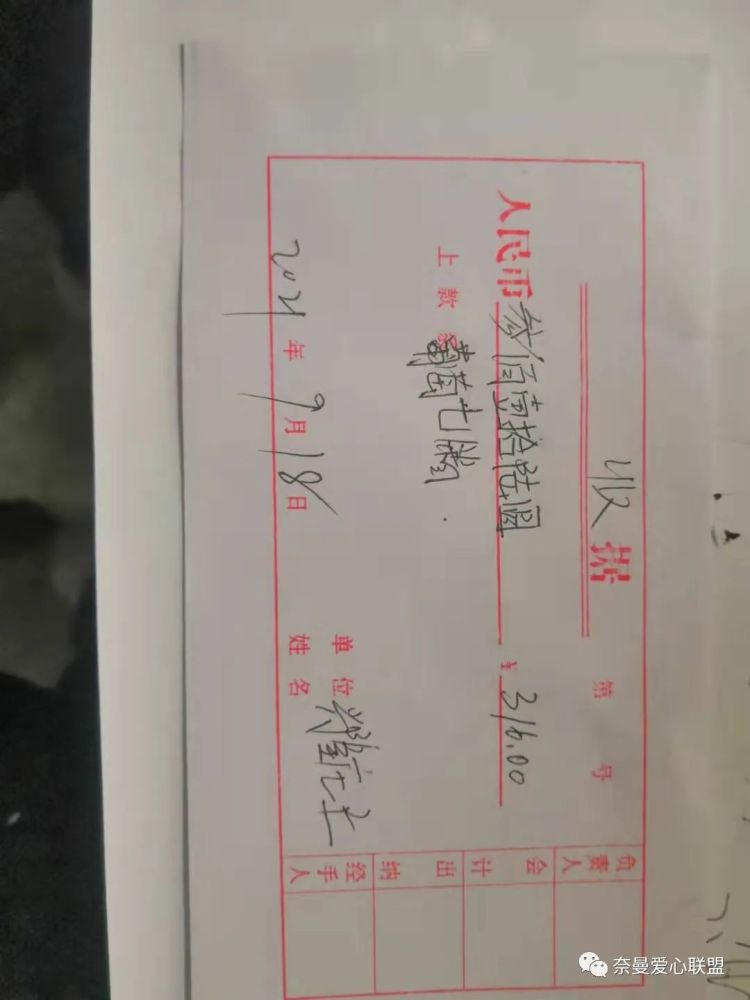 收据
第 号
人民币 叁佰壹拾陆圆 ¥ 316.00
上款系 葡萄七捆
2021年9月18日
单位
姓名
负责人
会计
出纳
经手人
奈曼爱心联盟